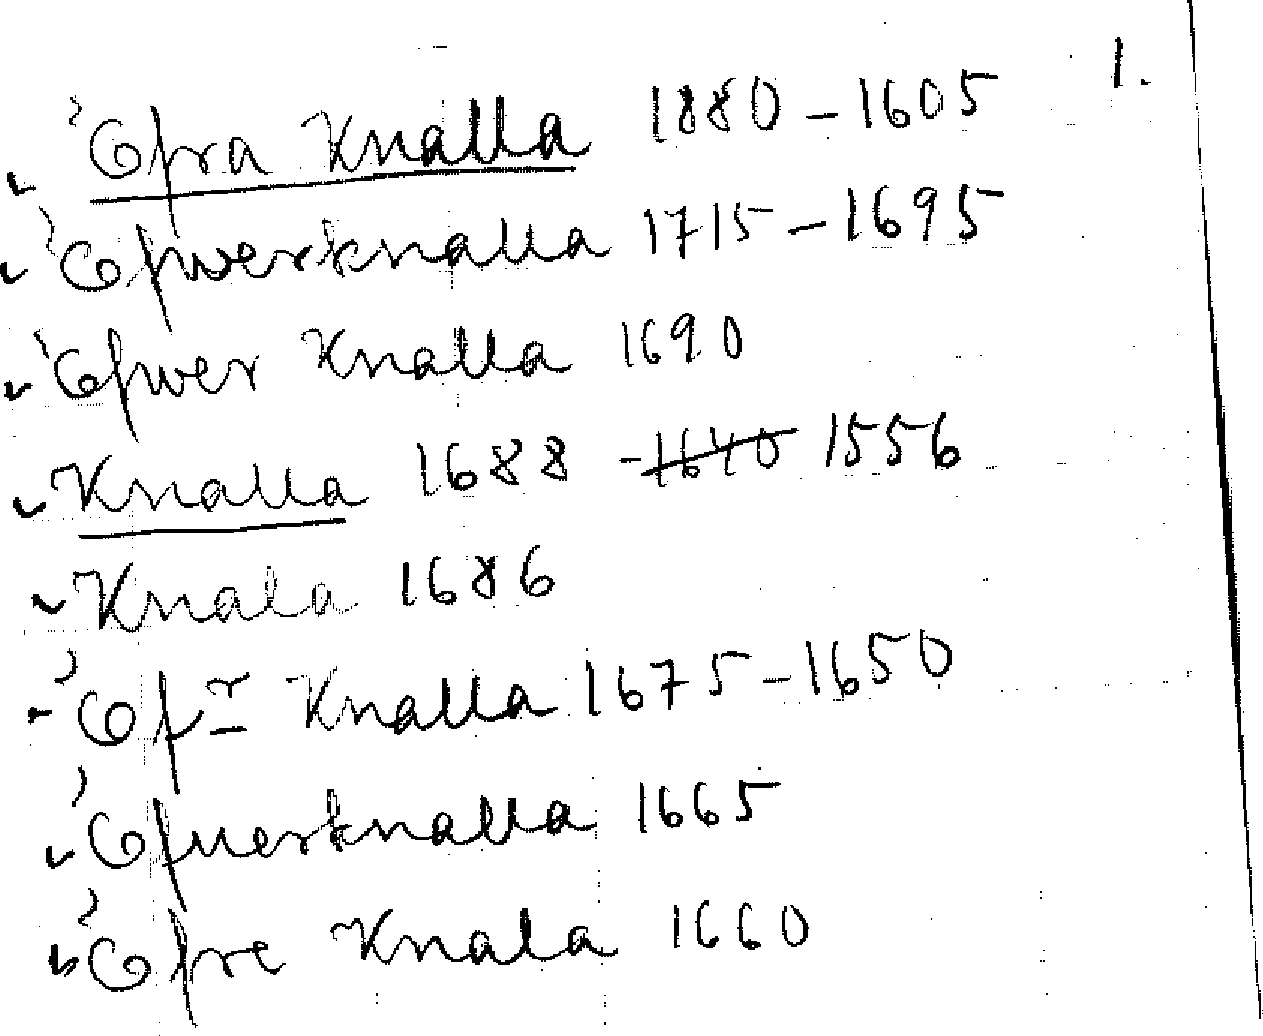 1.
Öfra Knalla 1880–1605
Öfwerknalla 1715–1695
Öfwer Knalla 1690
Knalla 1688 -1640 1556
Knala 1686
Öfr Knalla 1675–1650
Öfuerknalla 1665
Öfre Knala 1660